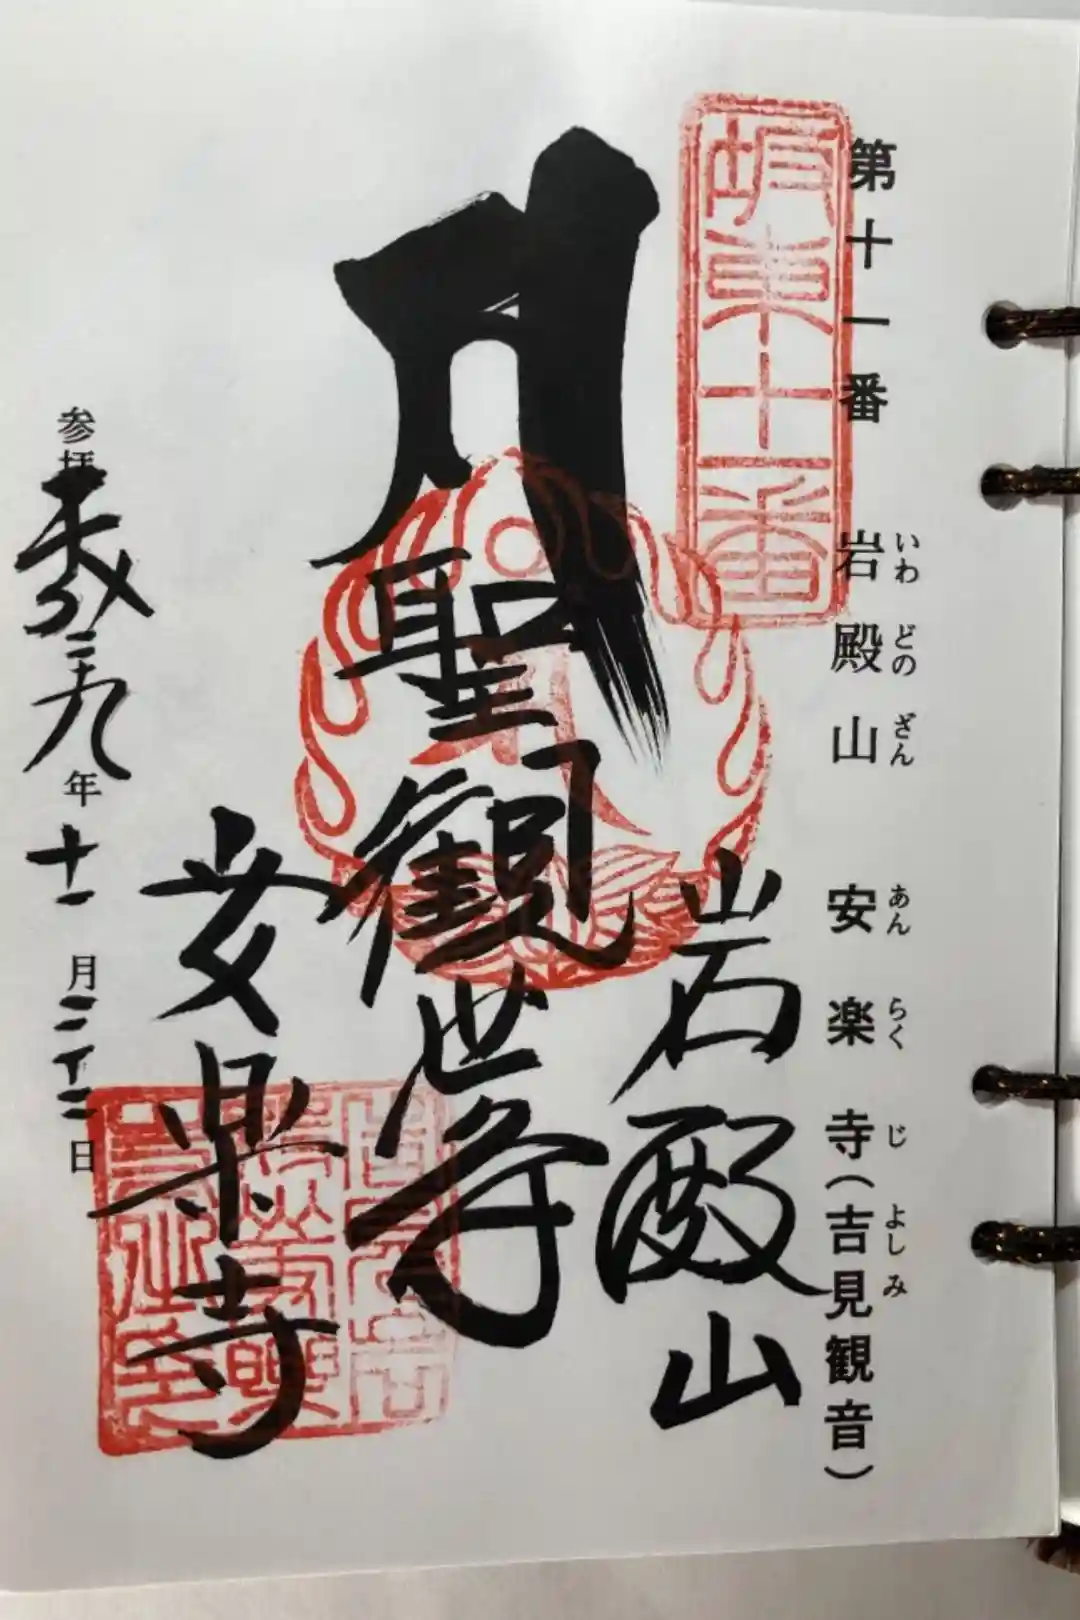 第十一番 岩殿山 安楽寺(吉見観音)
いわ どの ざん あん らく じ よし み
坂東十一番
岩殿山
聖觀世音
安楽寺
参拝 平成二九年十一月二十二日